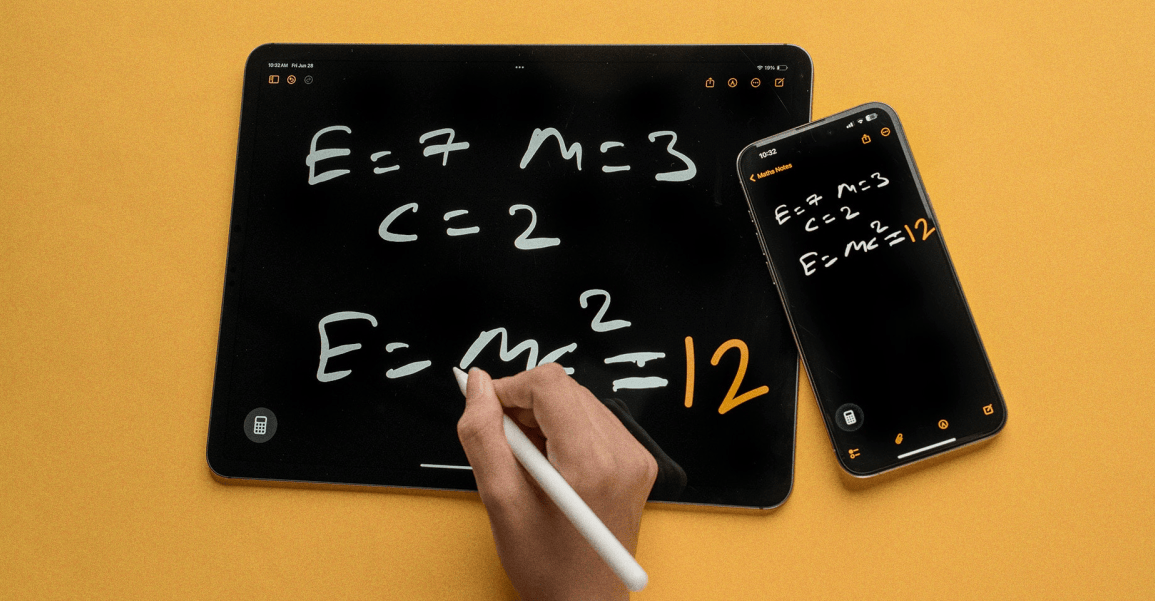 10:32 AM Fri Jun 28
19%
E=7 M=3
C=2
E=Mc²=12
10:32
Maths Notes
E=7 M=3
C=2
E=Mc²=12